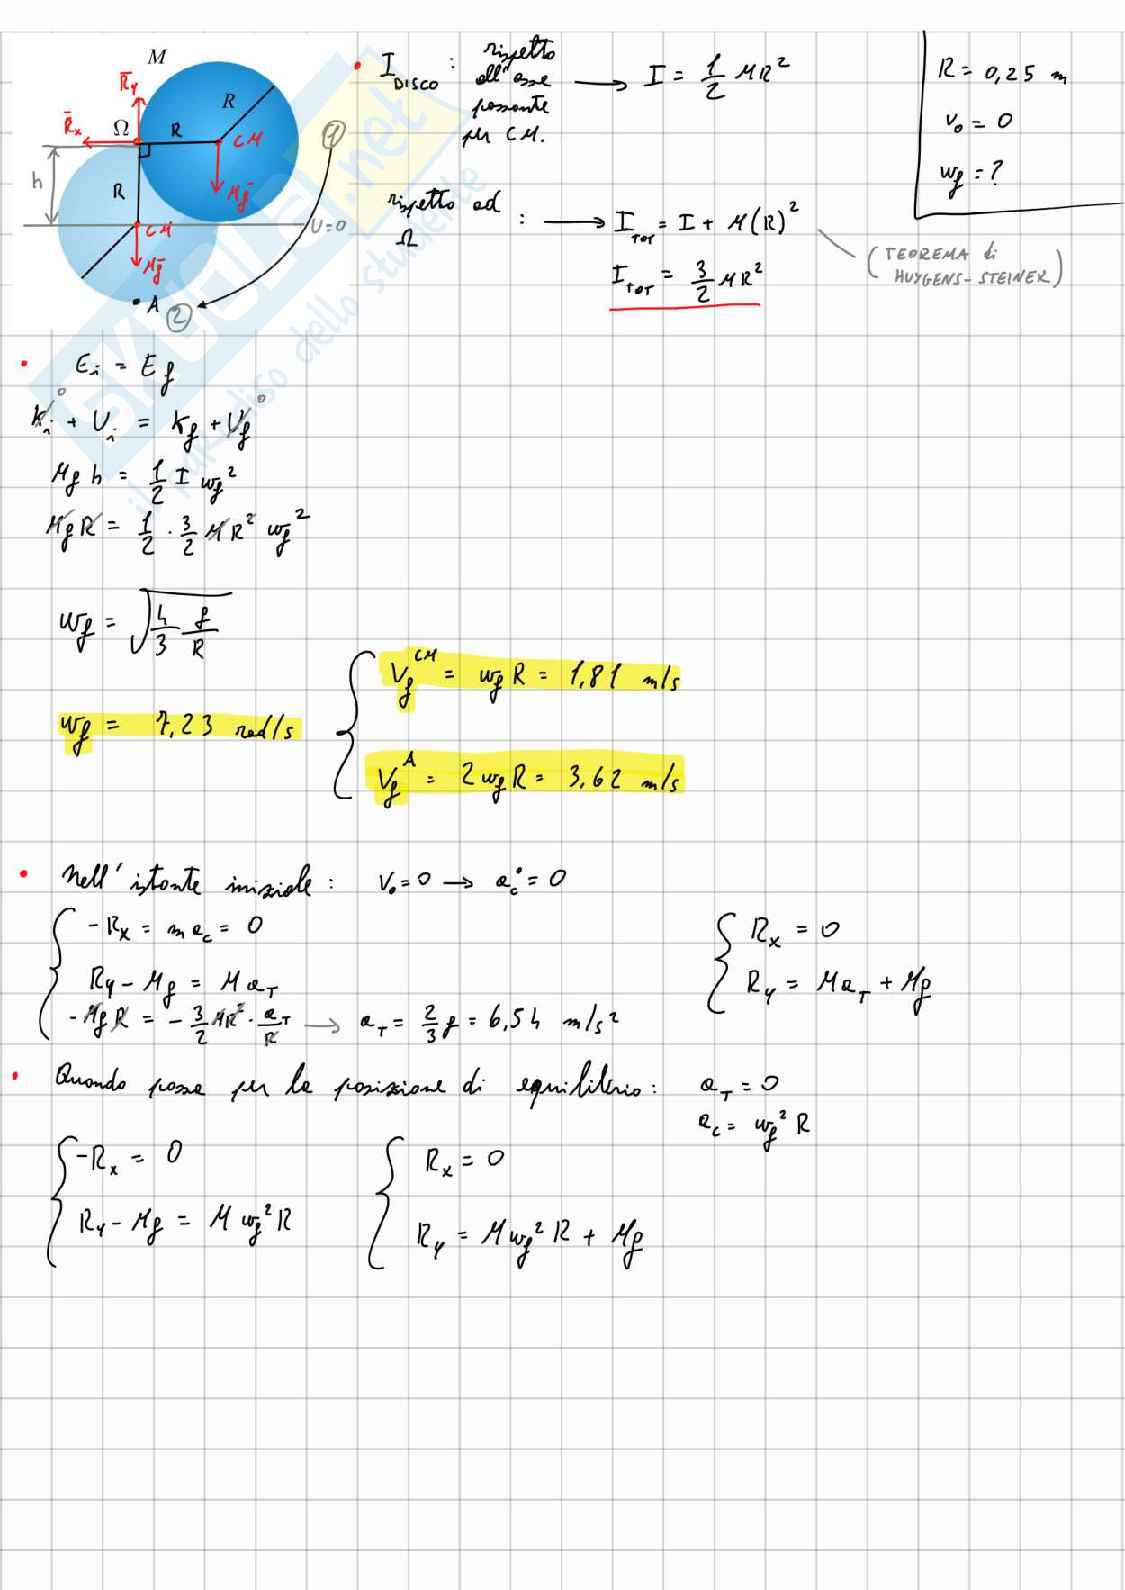 M
R̄y
R̄x
Ω
R
R
CM
Mḡ
h
R
CM
U=0
Mḡ
A
①
②
• I DISCO : rispetto all'asse passante per CM. → I = 1/2 MR²
rispetto ad Ω : → I_TOT = I + M(R)²
(TEOREMA di HUYGENS-STEINER)
I_TOT = 3/2 MR²
R = 0,25 m
v₀ = 0
ωf = ?
• Ei = Ef
Ki⁰ + Ui = Kf + Uf⁰
Mgh = 1/2 I ωf²
MgR = 1/2 · 3/2 MR² ωf²
ωf = √(4/3 g/R)
ωf = 7,23 rad/s
Vf^CM = ωf R = 1,81 m/s
Vf^A = 2ωf R = 3,62 m/s
• Nell'istante iniziale : V₀=0 → ac=0
-Rx = mac = 0
Ry - Mg = MaT
-MgR = -3/2 MR² · aT/R → aT = 2/3 g = 6,54 m/s²
Rx = 0
Ry = MaT + Mg
• Quando passa per la posizione di equilibrio : aT = 0
ac = ωf² R
-Rx = 0
Ry - Mg = M ωf² R
Rx = 0
Ry = M ωf² R + Mg
SKUOLA.net
il paradiso dello studente